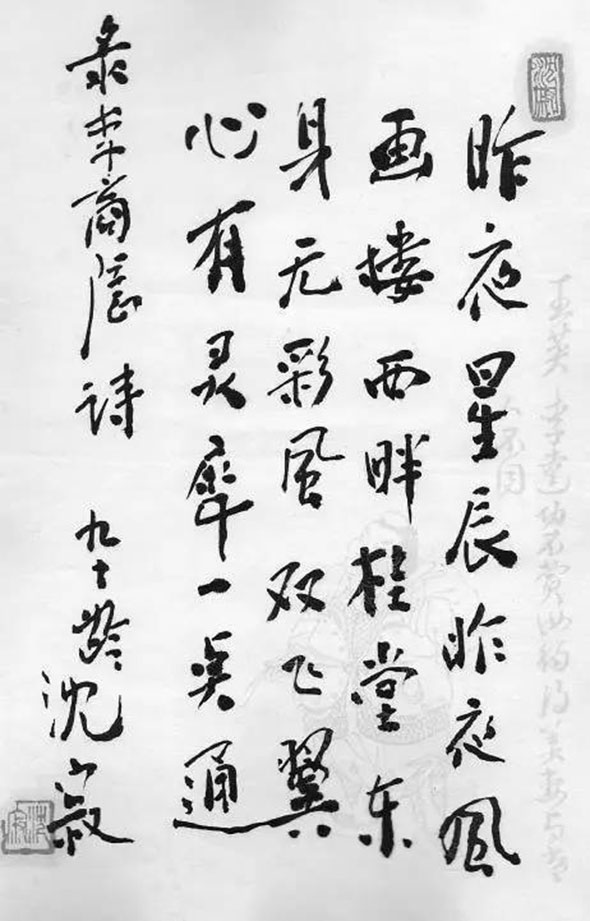 昨夜星辰昨夜风
画楼西畔桂堂东
身无彩凤双飞翼
心有灵犀一点通
录李商隐诗 九十龄沈寂
沈寂